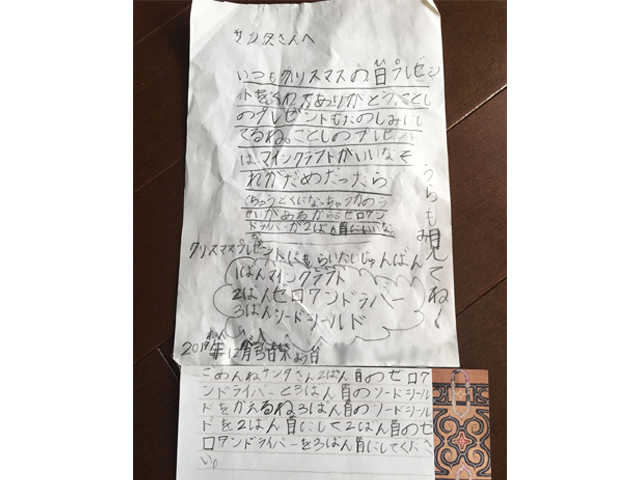 サンタさんへ
いつもクリスマスの日プレゼン
トをくれてありがとう。ことし
のプレゼントもたのしみにし
てるね。ことしのプレゼント
は、マインクラフトがいいなそ
れがだめだったら
(ちゅうとくになっちゃうかのう
せいがあるから)ゼロワン
ドライバーが2ばん目にいいな。
うらも見てね
クリスマスプレゼントはもらいたいじゅんばん
1ばんマインクラフト
2ばんゼロワンドラバー
3ばんソードシールド
2019年12月5日木よう日
ごめんねサンタさん2ばん目のゼロワ
ンドライバーと3ばん目のソードシール
ドをかえるね3ばん目のソードシール
ドを2ばん目にして2ばん目のゼ
ロワンドライバーを3ばん目にしてくださ
い。